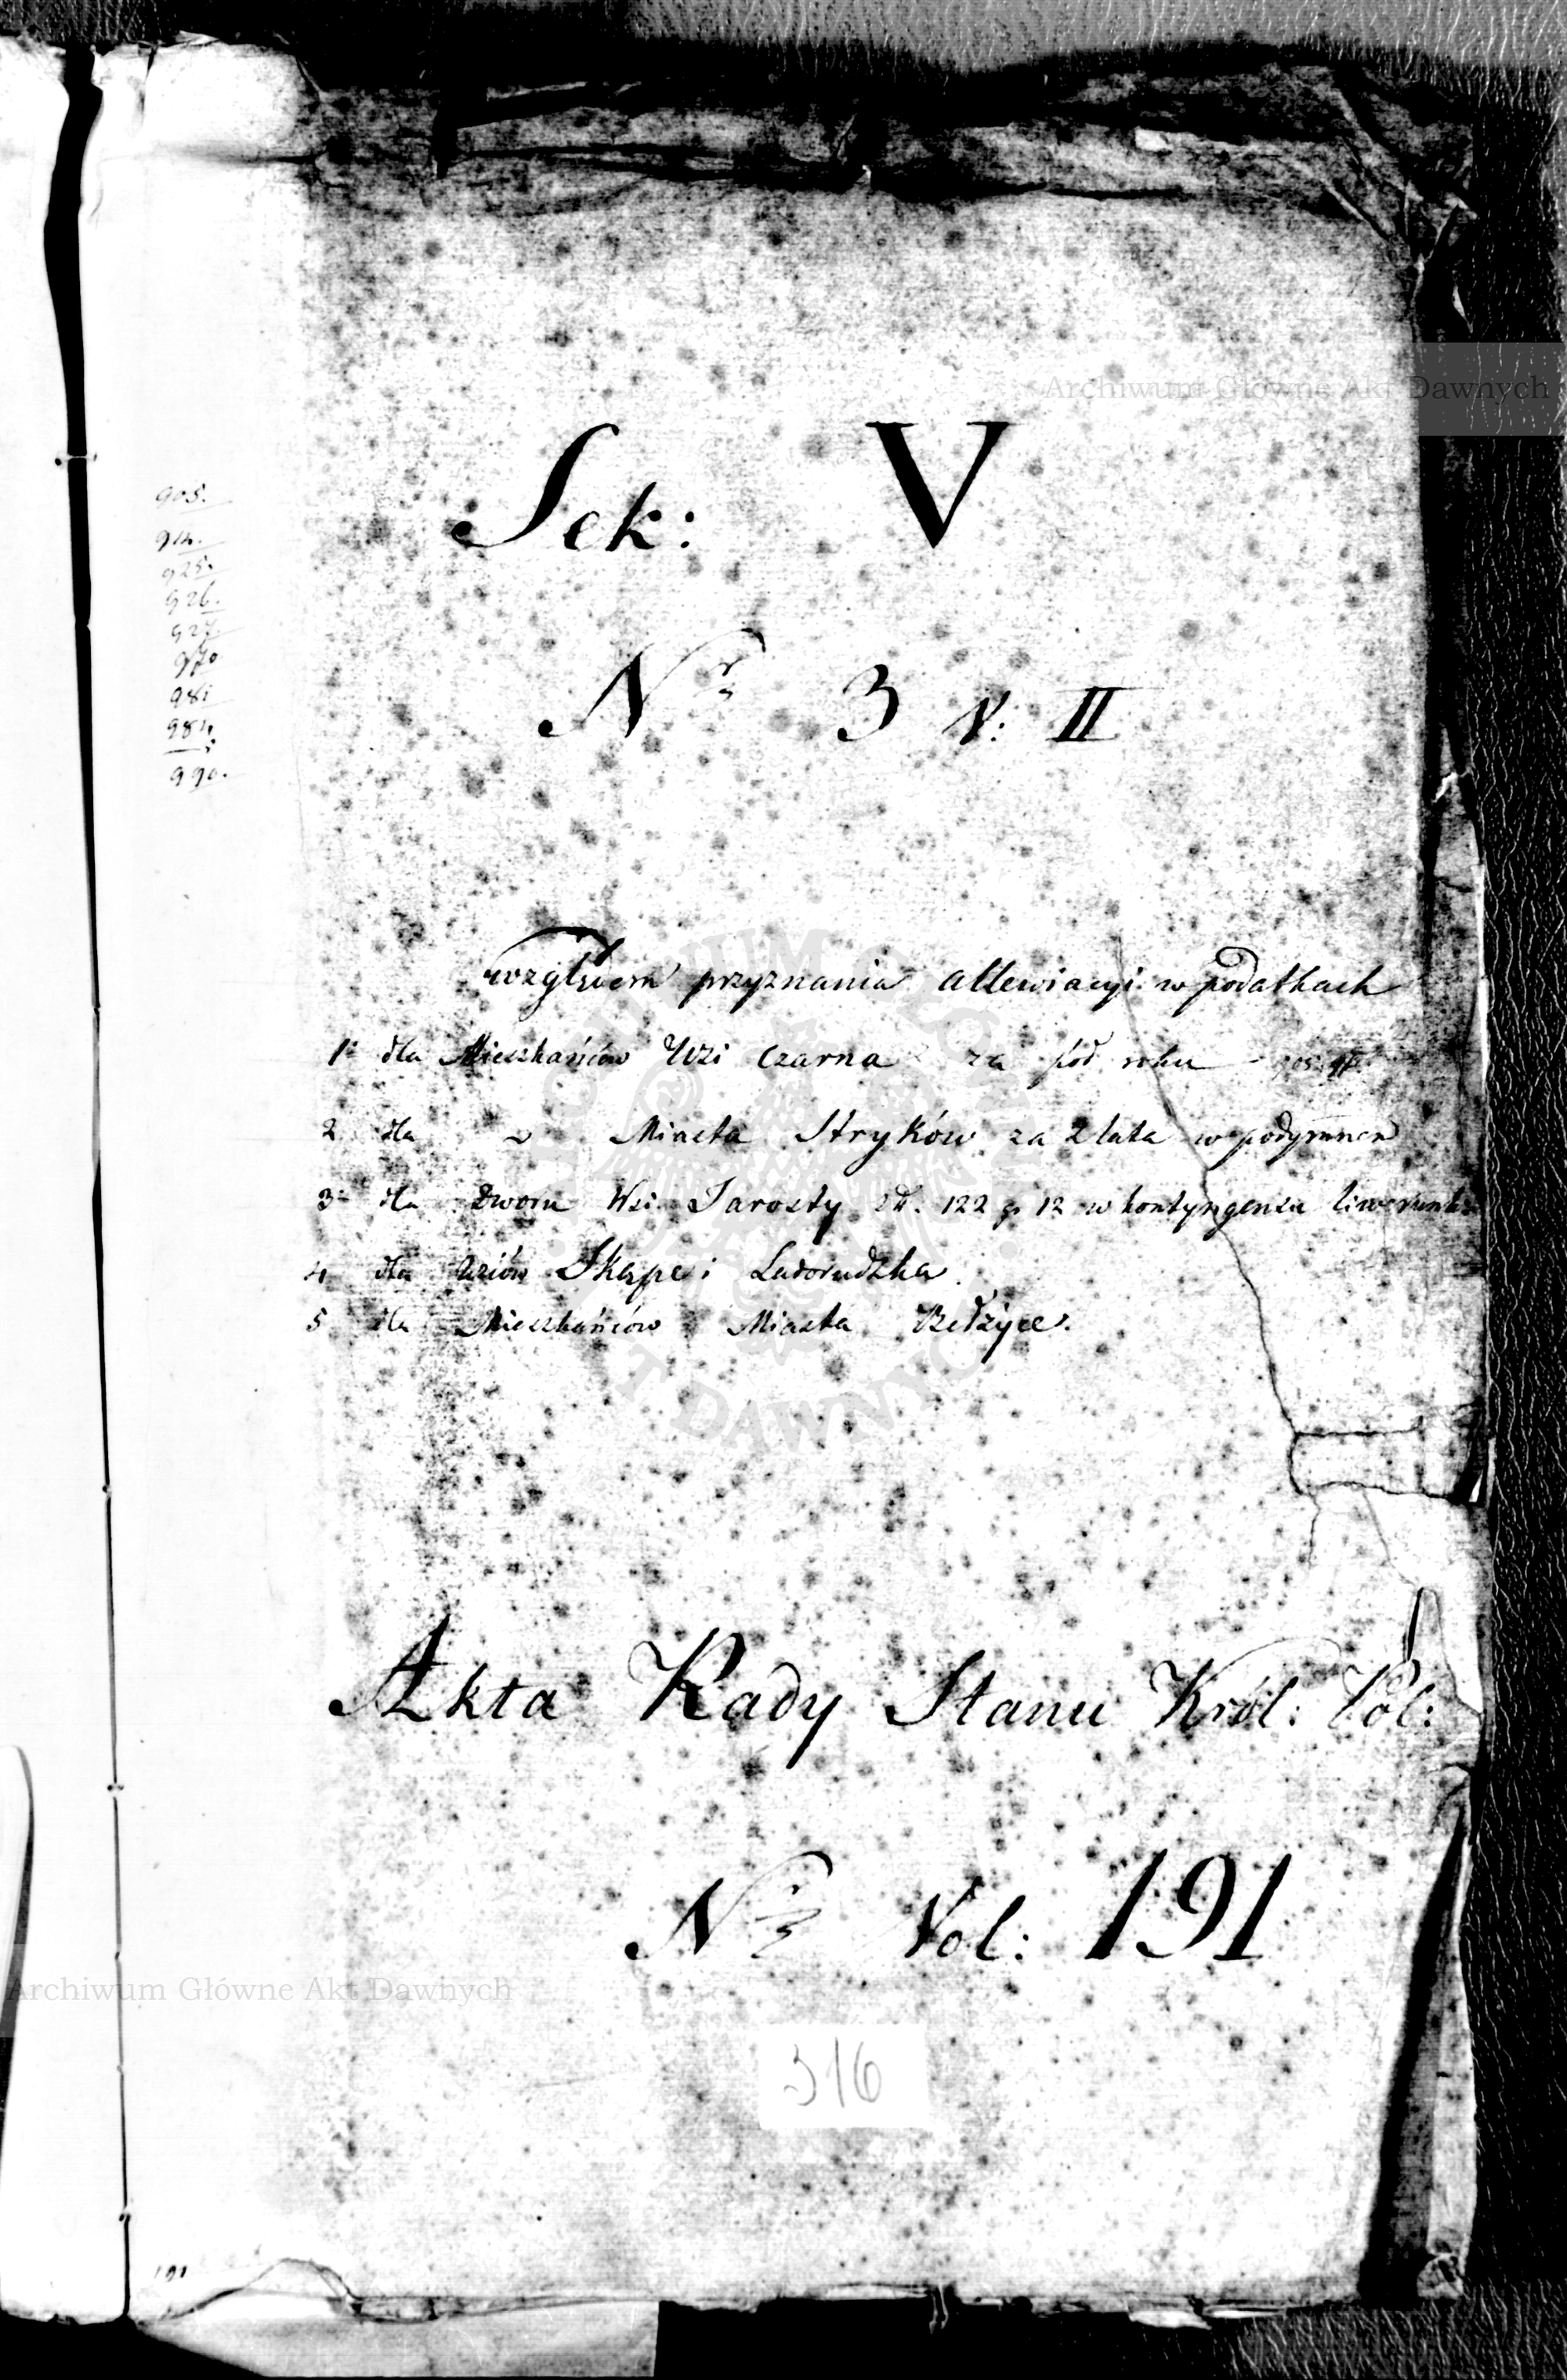 905.
914.
925.
926.
927
970
981
984
990.
Archiwum Główne Akt Dawnych
Sek: V
Nr 3 V: II
względem przyznania allewiacyi w podatkach
1 dla Mieszkańców Wsi Czarna za pół roku
2 dla Miasta Stryków za 2 lata w podymnem
3 dla Dworu Wsi Jarosty zł. 122 gr 12 w kontyngensu liwerunk
4 dla Wsiów Skąpe i Ladorudzka
5 dla Mieszkańców Miasta Bełżyce.
Akta Rady Stanu Król: Pol:
Nr Vol: 191
Archiwum Główne Akt Dawnych
316
191